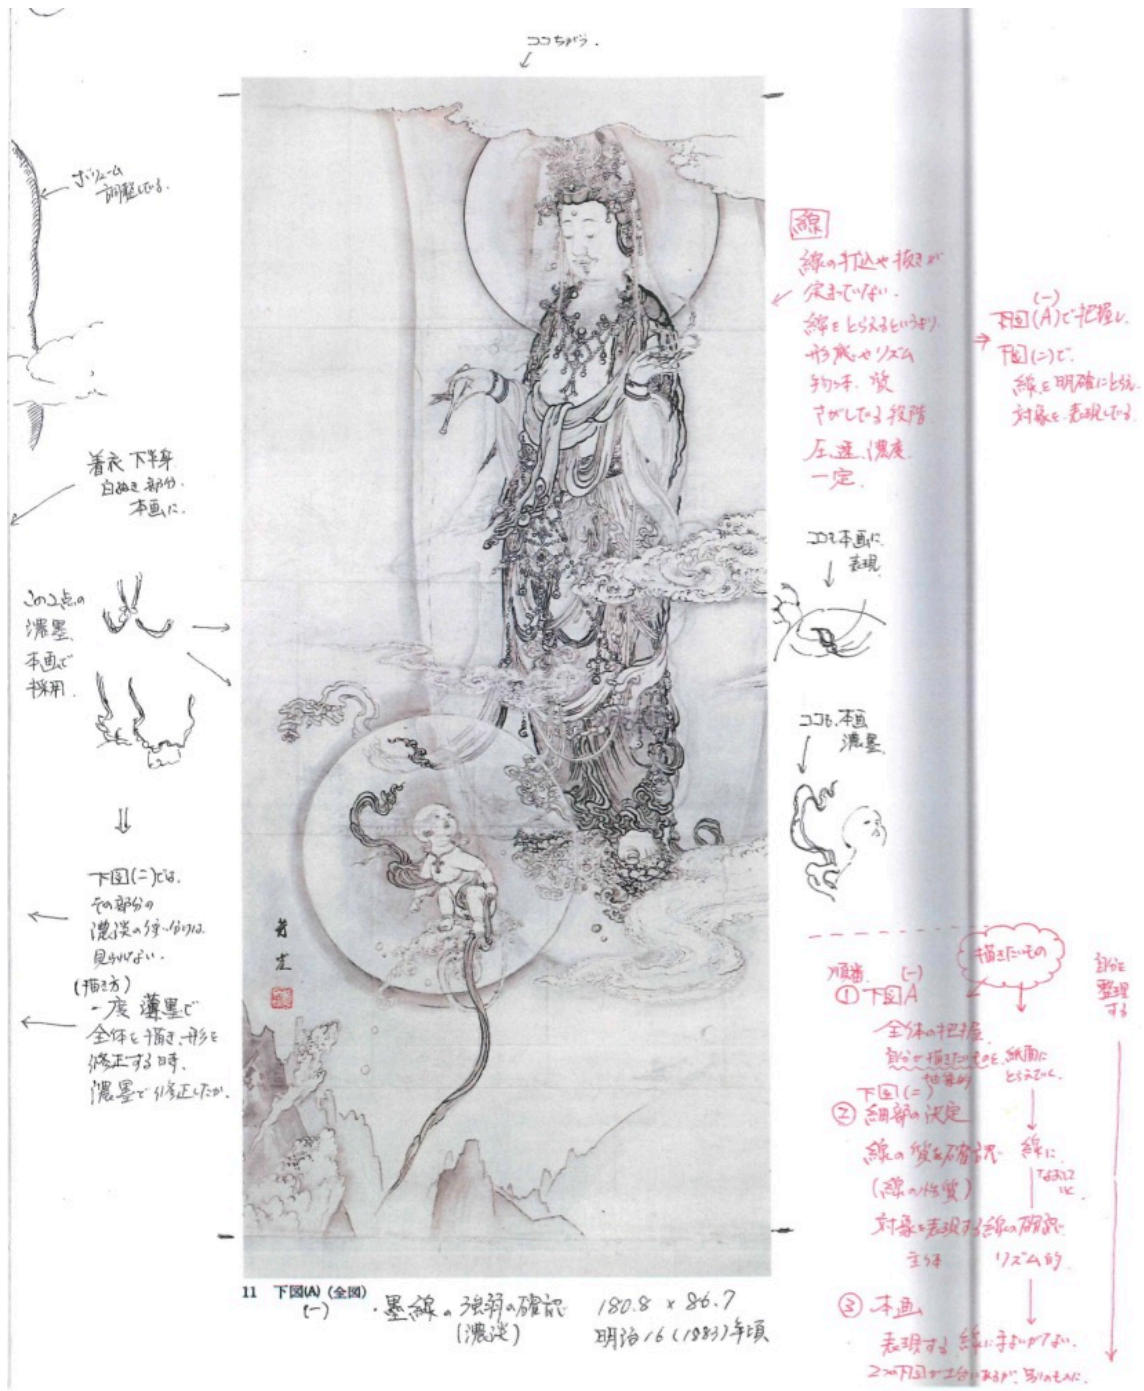 ココちがう.
ボリューム
調整している.
着衣 下半身
白ぬき部分.
本画に.
この2点の
濃墨
本画で
採用.
下図(二)では.
その部分の
濃淡の使い分けは
見られない.
(描き方)
一度 薄墨で
全体を描き、形を
修正する時.
濃墨で修正したか.
芳崖
線
線の打込や抜きが
定まっていない.
線をとらえるというより
形感やリズム
物体. 質
さがしている段階
圧、速、濃度
一定.
(一)
下図(A)で把握し.
下図(二)で.
線を明確にとらえ
対象を表現している
ココも本画に
表現
ココも、本画
濃墨
描きたいもの
自分を
整理
する
順番. (一)
① 下図A
全体の把握
自分が描きたいものを、紙面に
とらえていく.
下図(二)
② 細部の決定
線の質を確認 線に
(線の性質)
対象を表現する線の確認
主体 リズム的
③ 本画
表現する線にまよいがない.
2つの下図が土台にあるが、別のものに.
11 下図(A) (全図)
(一)
・墨線の強弱の確認 180.8 × 86.7
(濃淡) 明治16(1883)年頃